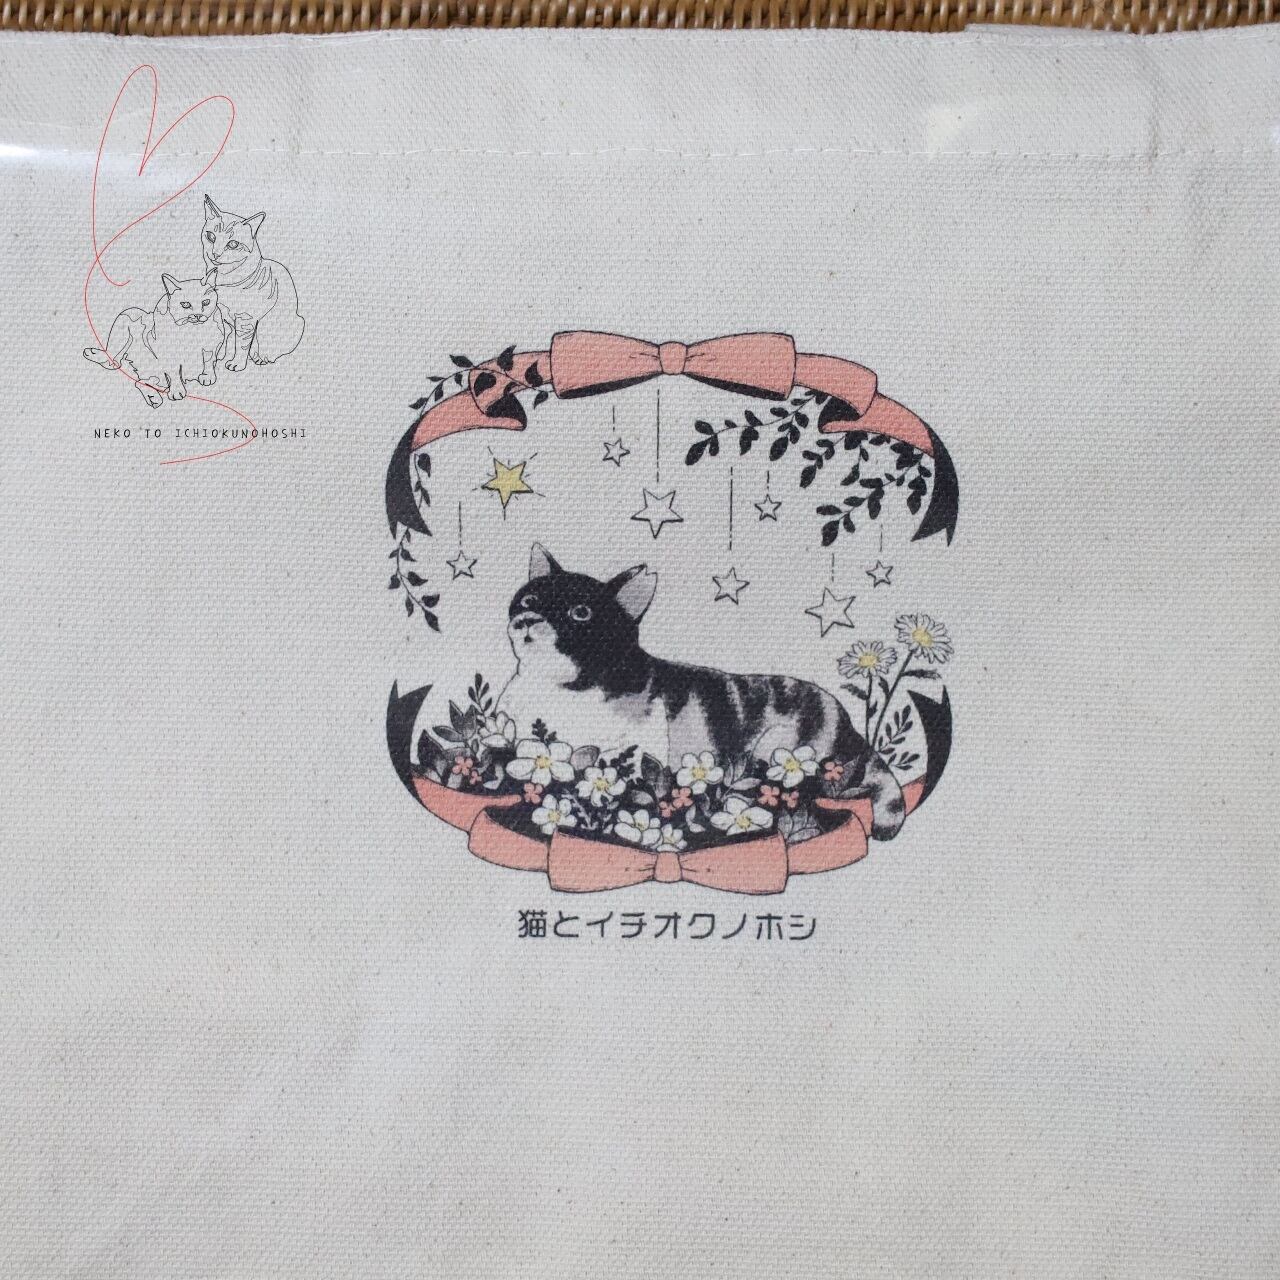 NEKO TO ICHIOKUNOHOSHI
猫とイチオクノホシ